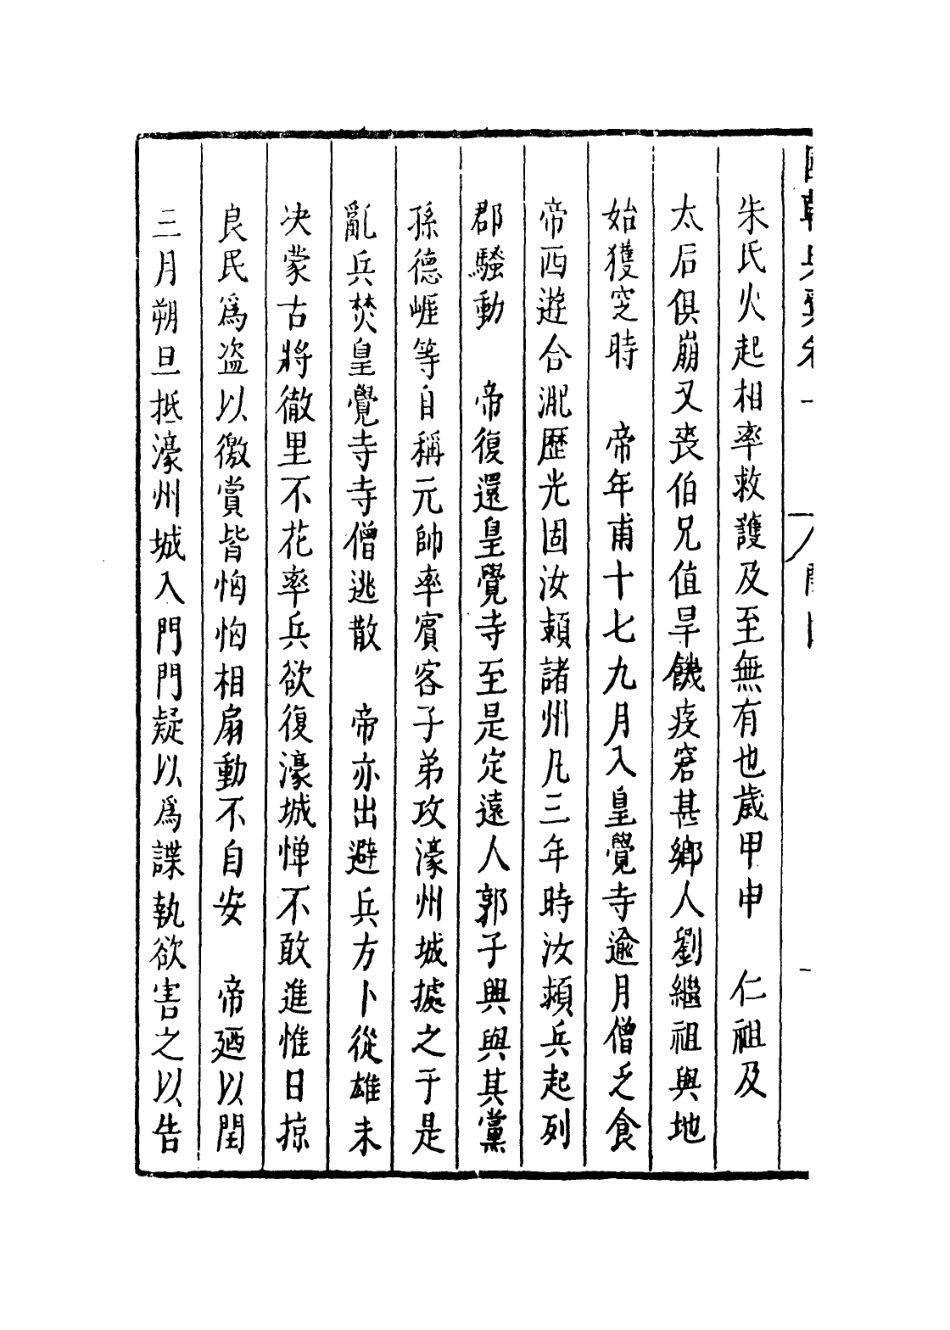 朱氏火起相率救護及至無有也歲甲申　仁祖及
太后俱崩又喪伯兄值旱饑疫窘甚鄉人劉繼祖與地
始獲窆時　帝年甫十七九月入皇覺寺逾月僧乏食
帝西遊合淝歷光固汝頼諸州凡三年時汝頼兵起列
郡騷動　帝復還皇覺寺至是定遠人郭子興與其黨
孫德崕等自稱元帥率賓客子弟攻濠州城據之于是
亂兵焚皇覺寺寺僧逃散　帝亦出避兵方卜從雄未
决蒙古將徹里不花率兵欲復濠城憚不敢進惟日掠
良民爲盗以徼賞皆恟恟相扇動不自安　帝廼以閏
三月朔旦抵濠州城入門門疑以爲諜執欲害之以告